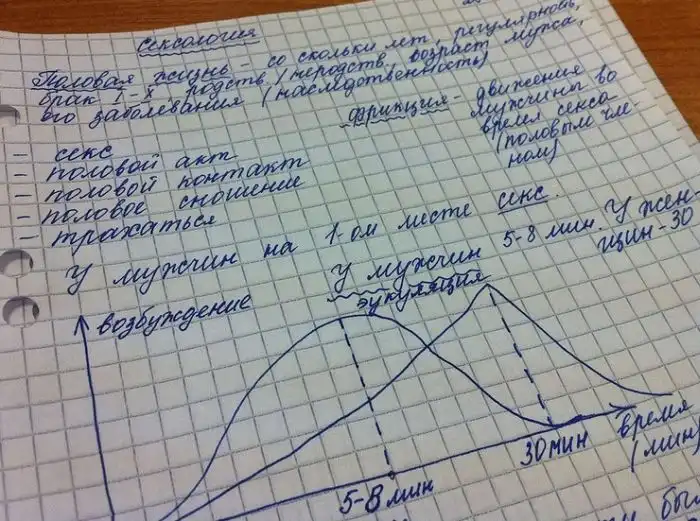 Сексология
Половая жизнь - со скольки лет, регулярность,
брак 1-й родств. / неродств, возраст мужа,
его заболевания (наследственность)
фрикция - движения
мужчины во
время секса
(половым чле-
ном)
- секс
- половой акт
- половой контакт
- половое сношение
- трахаться
У мужчин на 1-ом месте секс.
У мужчин 5-8 мин. У жен-
щин-30
эукуляция
возбуждение
30 мин
время
(мин)
5-8 мин